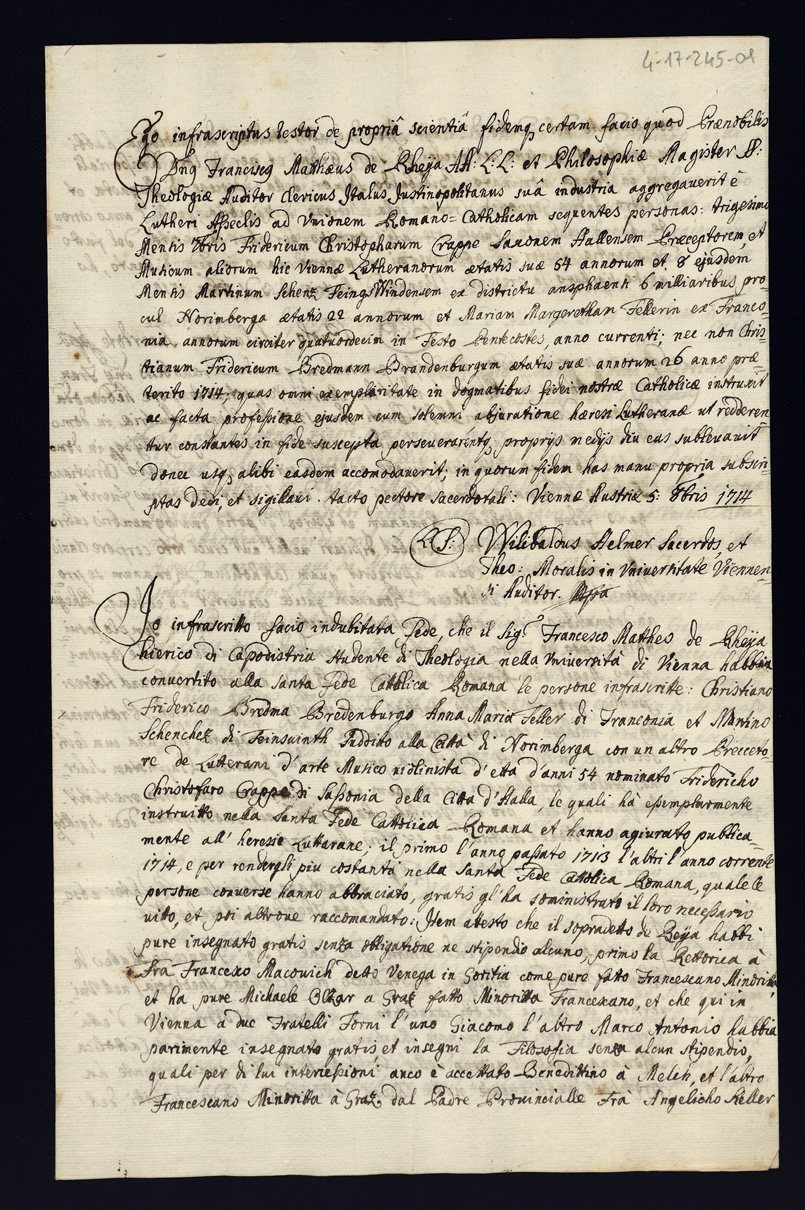 4-17-245-01
Ego infrascriptus testor de propriâ scientiâ fidemq certam facio quod Prænobilis
Dnq Franciscq Matthæus de Rheya AA: L:L: et Philosophiæ Magister SS:
Theologiæ Auditor Clericus Italus Justinopolitanus suâ industria aggregaverit è
Lutheri Asseclis ad Unionem Romano=Catholicam sequentes personas: trigesimo
Mensis 7bris Fridericum Christopharum Crappe Saxonem Hallensem Præceptorem, et
Musicum aliorum hic Viennæ Lutheranorum ætatis suæ 54 annorum et 8 ejusdem
Mensis Martinum Schenz Feing-Windensem ex districtu ansphaenti 6 milliaribus pro=
cul Norimberga ætatis 22 annorum et Mariam Margeretham Fellerin ex Franco=
nia, annorum circiter quatuordecim in Festo Pentecostes, anno currenti; nec non Chris=
tianum Fridericum Bredmann Brandenburgum ætatis suæ annorum 26 anno præ=
terito 1714; quas omni exemplaritate in dogmatibus fidei nostræ Catholicæ instruxit
ac facta professione ejusdem cum solemni abjuratione hæresi Lutheranæ ut redderen
tur constantes in fide suscepta perseverarentq, proprijs medijs diu eas sublevavit
donec usq, alibi easdem accomodaverit, in quorum fidem has manu propria subscri=
ptas dedi, et sigillavi. tacto pectore sacerdotali: Viennæ Austriæ 5: 8bris 1714
L.S: Wilibaldus Helmer Sacerdos, et
Theo: Moralis in Universitate Viennen=
si Auditor.
Io infrascritto facio indubitata Fede, che il Sigr Francesco Matthes de Rheya
Chierico di Capodistria studente di Theologia nella Università di Vienna habbia
convertito alla Santa Fede Cattolica Romana le persone infrascritte: Christiano
Friderico Bredma Bredenburgo Anna Maria Feller di Franconia et Martino
Schenchez di Feinsuinth suddito alla Città di Norimberga con un altro Preccetto=
re de Lutterani d'arte Musico violinista d'etta d'anni 54 nominato Fridericho
Christofaro Crappe di Sassonia della Citta d'Halla, le quali hà esemplarmente
instruitto nella Santa Fede Cattolica Romana et hanno agiurato publica=
mente all' heresie Luttarane: il primo l'anno passato 1713 l'altri l'anno corrente
1714, e per rendergli piu costanti nella Santa Fede Cattolica Romana, quale le
persone converse hanno abbraciato, gratis gl'ha soministrato il loro necessario
vitto, et poi altrove raccomandato: Item attesto che il sopradetto de Reya habbi
pure insegnato gratis senza obligatione ne stipendio alcuno, primo la Rettorica à
Frà Francesco Macovich detto Venega in Goritia come pure fatto Francescano Minoritta,
et ha pure Michaele a Graz fatto Minoritta Francescano, et che qui in
Vienna a due Fratelli Forni l'uno Giacomo l'altro Marco Antonio habbia
parimente insegnato gratis et insegni la Filosofia senza alcun stipendio,
quali per di lui intercessioni anco è accettato Benedittino à Melch, et l'altro
Francescano Minoritta à Graz dal Padre Provincialle Frà Angelicho Keller